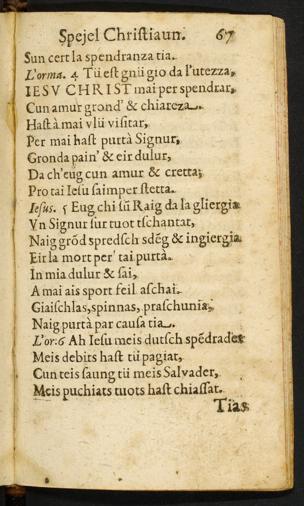 Spejel Chriſtiaun. 67
Sun cert la spendranza tia.
L'orma. 4 Tü eſt gnü gio da l'utezza,
IESV CHRIST mai per spendrar,
Cun amur grond' & chiareza.
Haſt à mai vlü viſitar,
Per mai haſt purtà Signur,
Gronda pain' & eir dulur,
Da ch'eug cun amur & cretta,
Pro tai Ieſu ſaimper ſtetta.
Ieſus. 5 Eug chi ſū Raig da la gliergia
Vn Signur ſur tuot tſchantat,
Naig grōd spredſch sdēg & ingiergia
Eir la mort per' tai purtà.
In mia dulur & ſai,
A mai ais sport feil aſchai.
Giaiſchlas, spinnas, praſchunia,
Naig purtà par cauſa tia.
L'or: 6 Ah Ieſu meis dutſch spēdrader
Meis debits haſt tü pagiat,
Cun teis ſaung tü meis Salvader,
Meis puchiats tuots haſt chiaſſat.
Tias